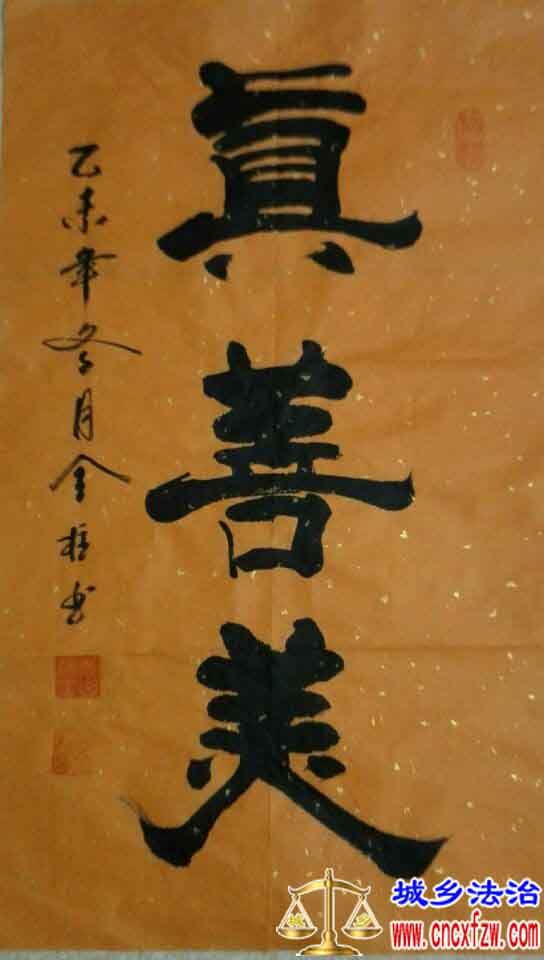 眞善美
乙未年冬月金柱书
城乡法治
www.cncxfzw.com